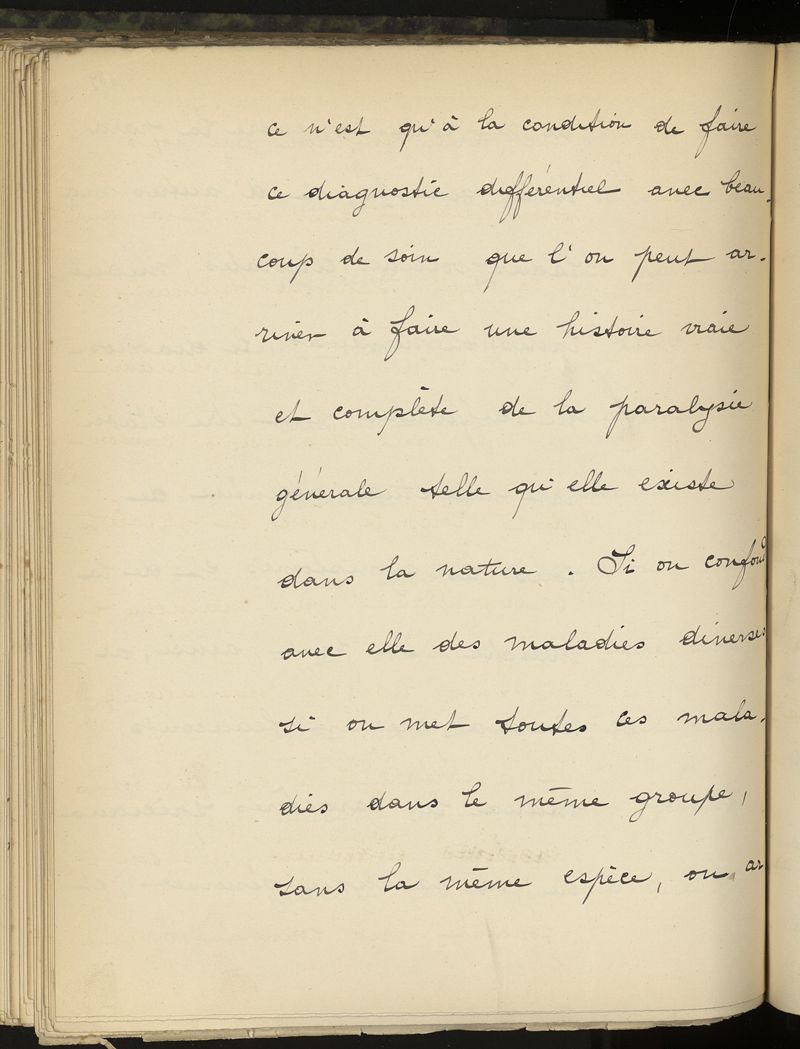 ce n'est qu'à la condition de faire
ce diagnostic différentiel avec beau-
coup de soin que l'on peut ar-
river à faire une histoire vraie
et complète de la paralysie
générale telle qu'elle existe
dans la nature. Si on confond
avec elle des maladies diverses
si on met toutes ces mala-
dies dans le même groupe,
sans la même espèce, on ar